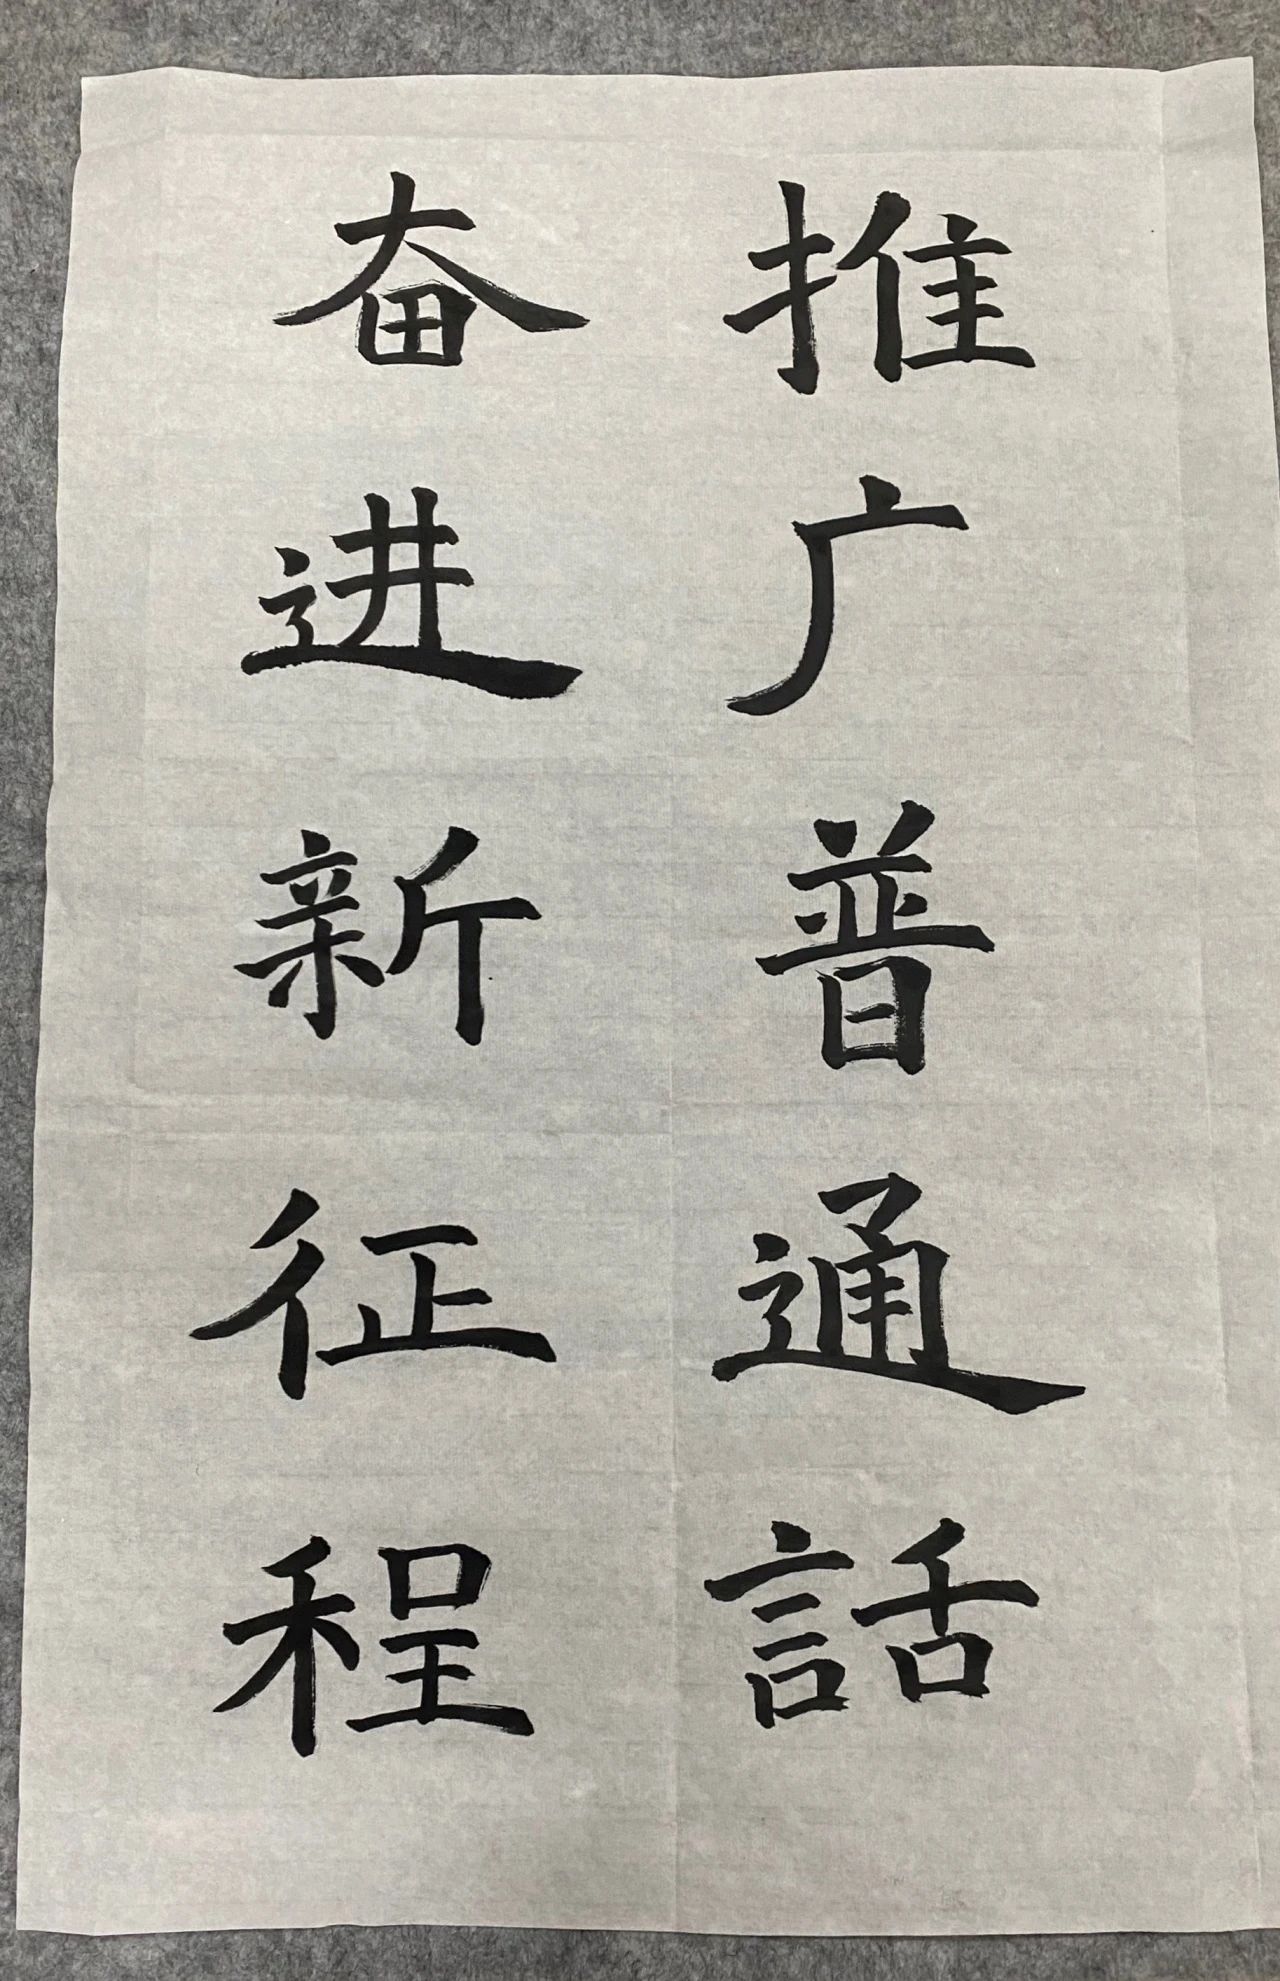 推广普通話
奋进新征程